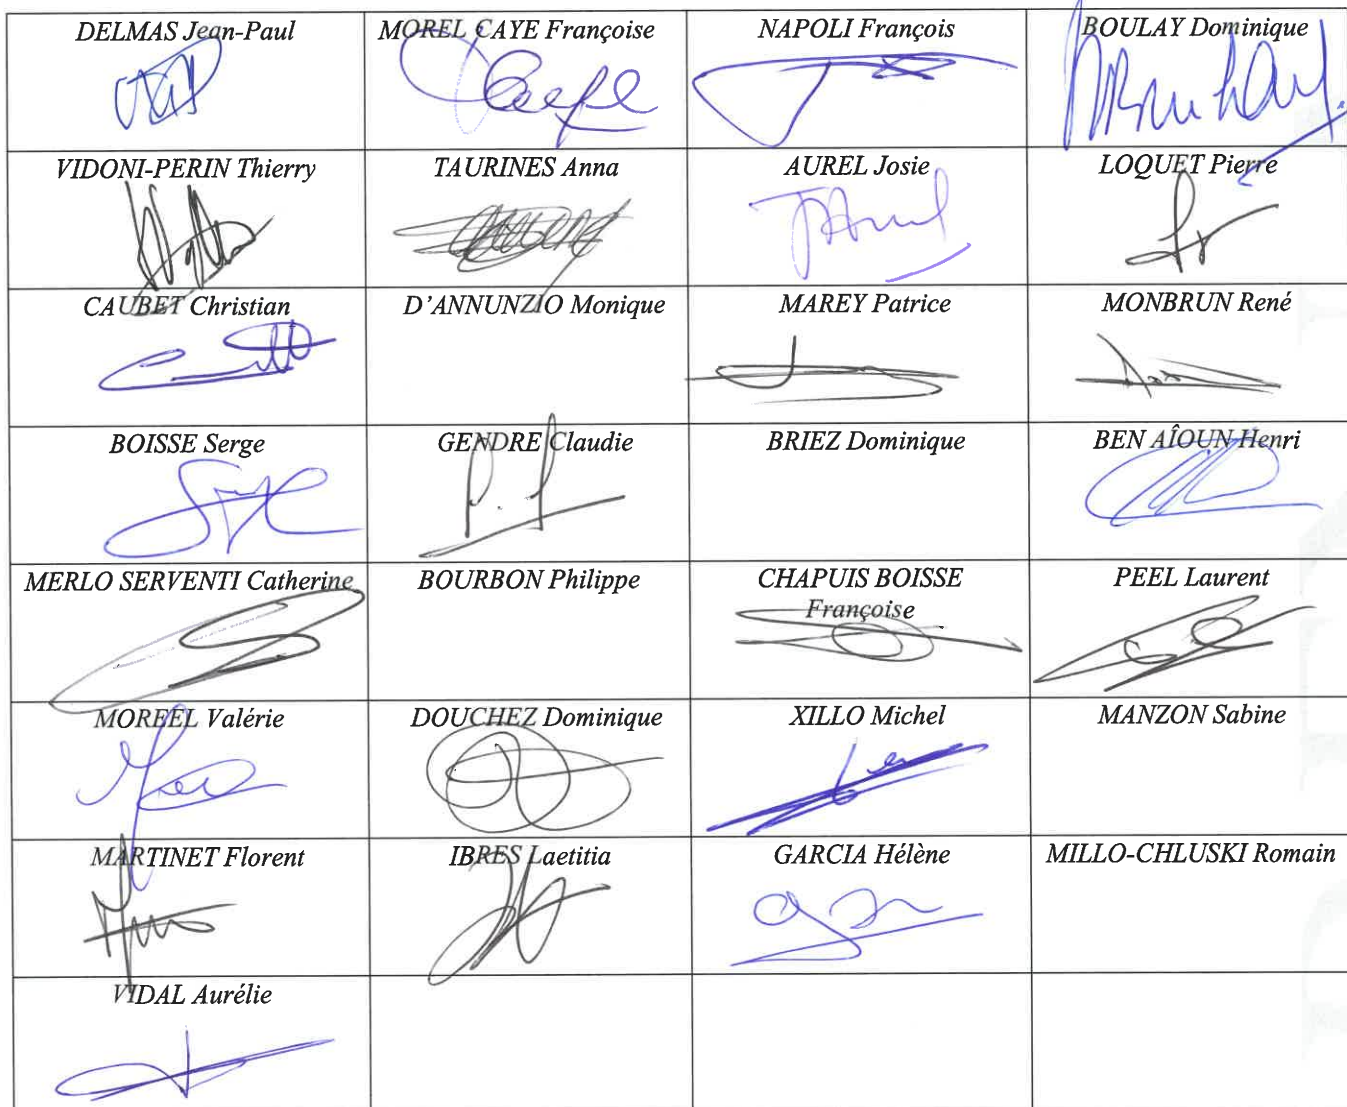 DELMAS Jean-Paul
MOREL CAYE Françoise
NAPOLI François
BOULAY Dominique
VIDONI-PERIN Thierry
TAURINES Anna
AUREL Josie
LOQUET Pierre
CAUBET Christian
D'ANNUNZIO Monique
MAREY Patrice
MONBRUN René
BOISSE Serge
GENDRE Claudie
BRIEZ Dominique
BEN AÎOUN Henri
MERLO SERVENTI Catherine
BOURBON Philippe
CHAPUIS BOISSE
Françoise
PEEL Laurent
MOREEL Valérie
DOUCHEZ Dominique
XILLO Michel
MANZON Sabine
MARTINET Florent
IBRES Laetitia
GARCIA Hélène
MILLO-CHLUSKI Romain
VIDAL Aurélie